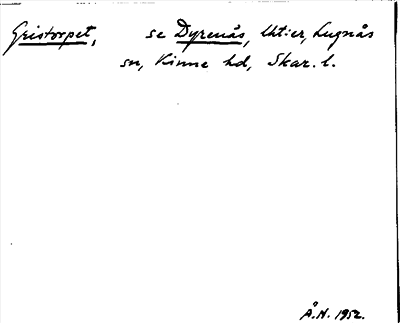 Gristorpet, se Dyrenäs, Utter, Lugnås
sn, Kinne hd, Skar. l.
Å.H. 1952.